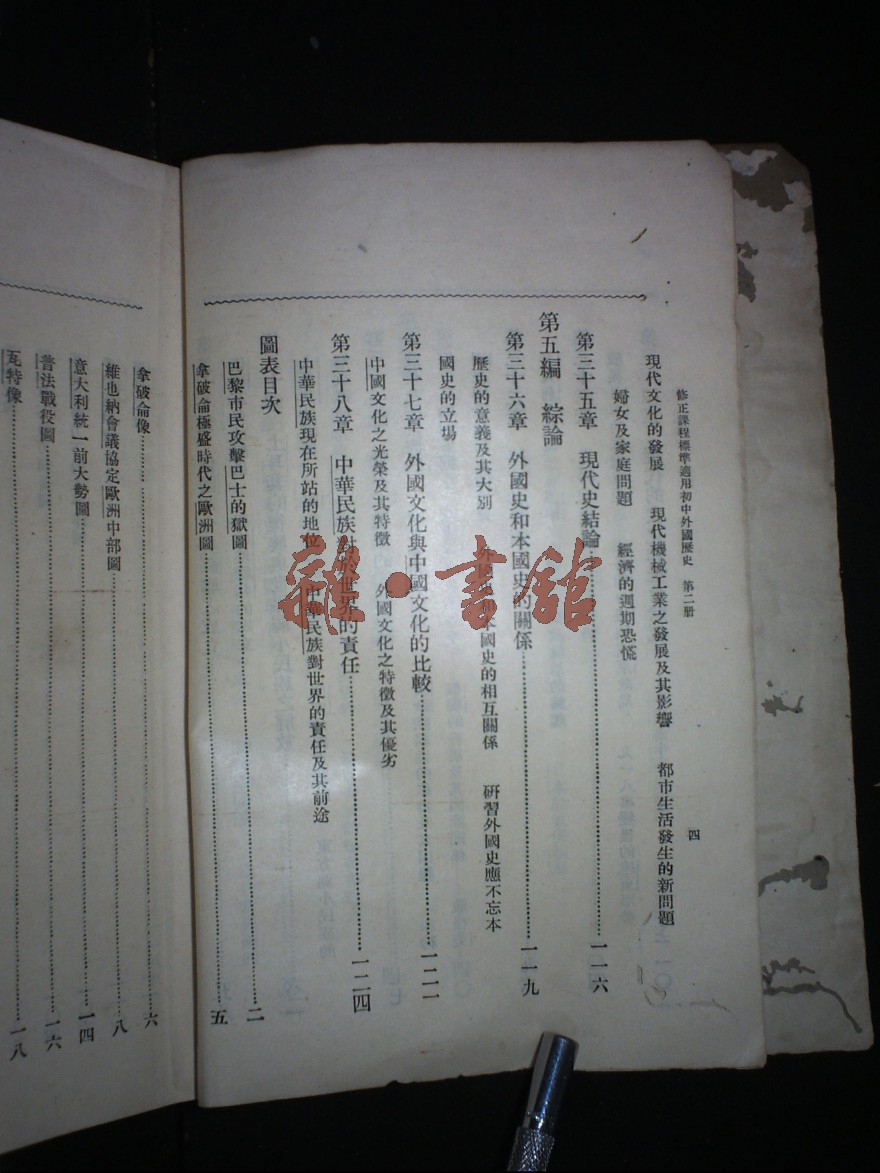 修正課程標準適用初中外國歷史　第二册
四
現代文化的發展　現代機械工業之發展及其影響　都市生活發生的新問題
婦女及家庭問題　經濟的週期恐慌
第三十五章　現代史結論……一一六
第五編　綜論
第三十六章　外國史和本國史的關係……一一九
歷史的意義及其大別　外國史和本國史的相互關係　研習外國史應不忘本
國史的立場
第三十七章　外國文化與中國文化的比較……一二一
中國文化之光榮及其特徵　外國文化之特徵及其優劣
第三十八章　中華民族對於世界的責任……一二四
中華民族現在所站的地位　中華民族對世界的責任及其前途
圖表目次
巴黎市民攻擊巴士的獄圖……二
拿破侖極盛時代之歐洲圖……五
拿破侖像……六
維也納會議協定歐洲中部圖……八
意大利統一前大勢圖……一四
普法戰役圖……一六
瓦特像……一八
雜·書館